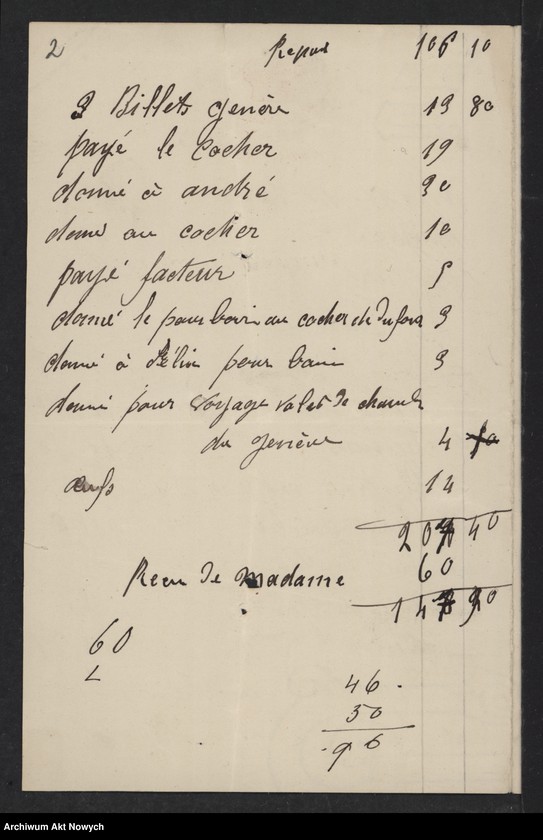 2 Repor 106 10
3 Billets genève 13 80
payé le cocher 19
donné à andré 30
donné au cocher 10
payé facteur 5
donné le pour boir au cocher de 3
donné à pour bain 3
donné pour voyage valet de chamb
de genève 4 50
œufs 14
207 40
Recu de madame 60
147
60
46
50
96
Archiwum Akt Nowych